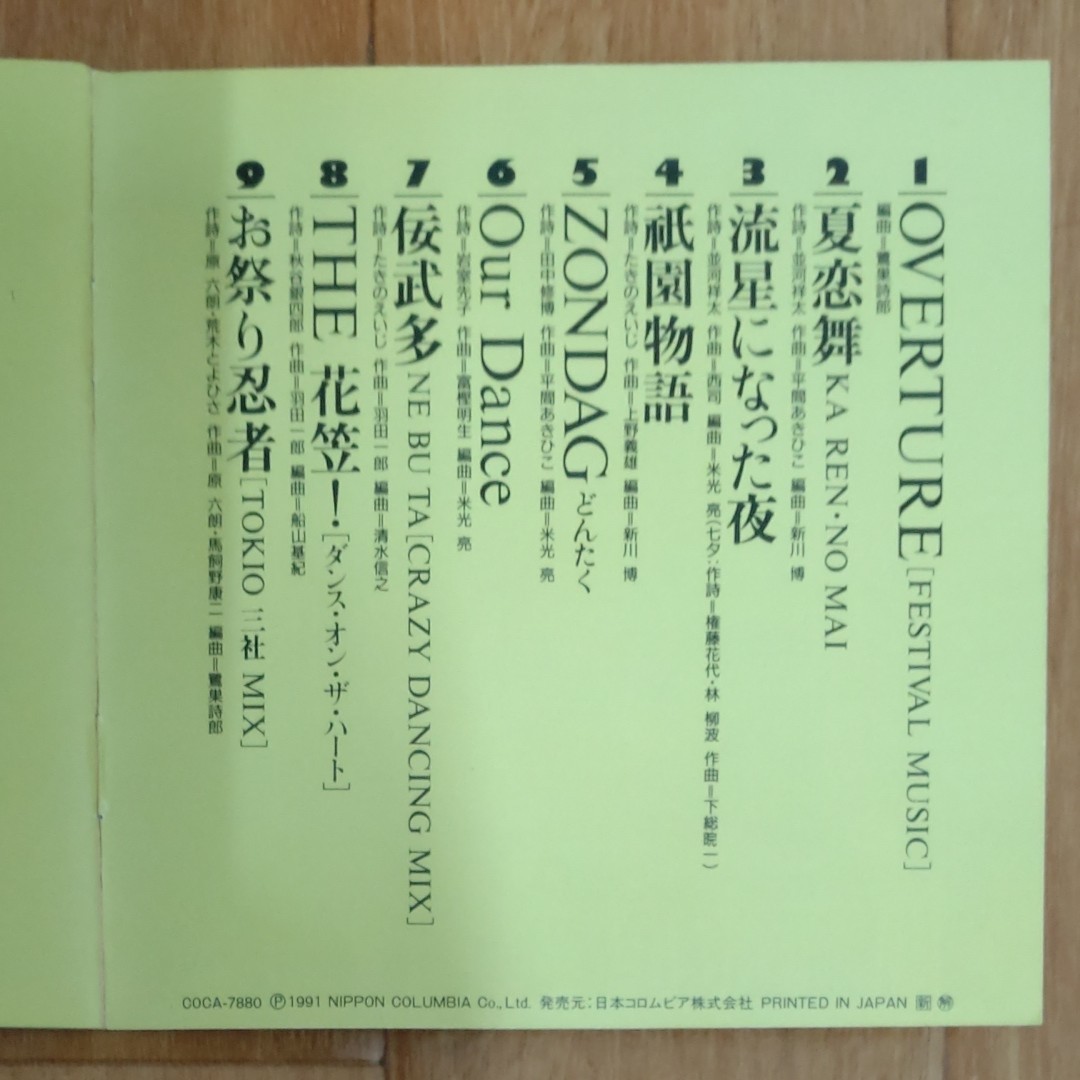 1 OVERTURE [FESTIVAL MUSIC]
編曲=鷺巣詩郎
2 夏恋舞 KA REN・NO MAI
作詩=並河祥太 作曲=平間あきひこ 編曲=新川 博
3 流星になった夜
作詩=並河祥太 作曲=西司 編曲=米光 亮(七夕:作詩=権藤花代・林 柳波 作曲=下総皖一)
4 祇園物語
作詩=たきのえいじ 作曲=上野義雄 編曲=新川 博
5 ZONDAG どんたく
作詩=田中修博 作曲=平間あきひこ 編曲=米光 亮
6 Our Dance
作詩=岩室先子 作曲=富樫明生 編曲=米光 亮
7 佞武多 NE BU TA [CRAZY DANCING MIX]
作詩=たきのえいじ 作曲=羽田一郎 編曲=清水信之
8 THE 花笠!・[ダンス・オン・ザ・ハート]
作詩=秋谷銀四郎 作曲=羽田一郎 編曲=船山基紀
9 お祭り忍者 [TOKIO 三社 MIX]
作詩=原 六朗・荒木とよひさ 作曲=原 六朗・馬飼野康二 編曲=鷺巣詩郎
COCA-7880 Ⓟ1991 NIPPON COLUMBIA Co., Ltd. 発売元:日本コロムビア株式会社 PRINTED IN JAPAN